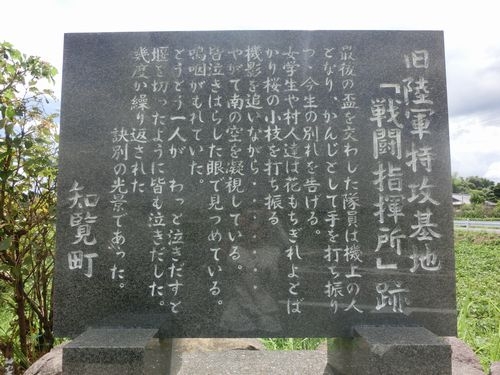 旧陸軍特攻基地
「戦闘指揮所」跡
最後の盃を交わした隊員は機上の人
となり、かんじとして手を打ち振り
つゝ今生の別れを告げる。
女学生や村人達は花もちぎれよとば
かり桜の小枝を打ち振る
機影を追いながら・・・・・・・
やがて南の空を凝視している。
皆泣きはらした眼で見つめている。
嗚咽がもれていた。
とうとう一人が わっと泣きだすと
堰を切ったように皆む泣きだした。
幾度か繰り返された
訣別の光景であった。
知覧町